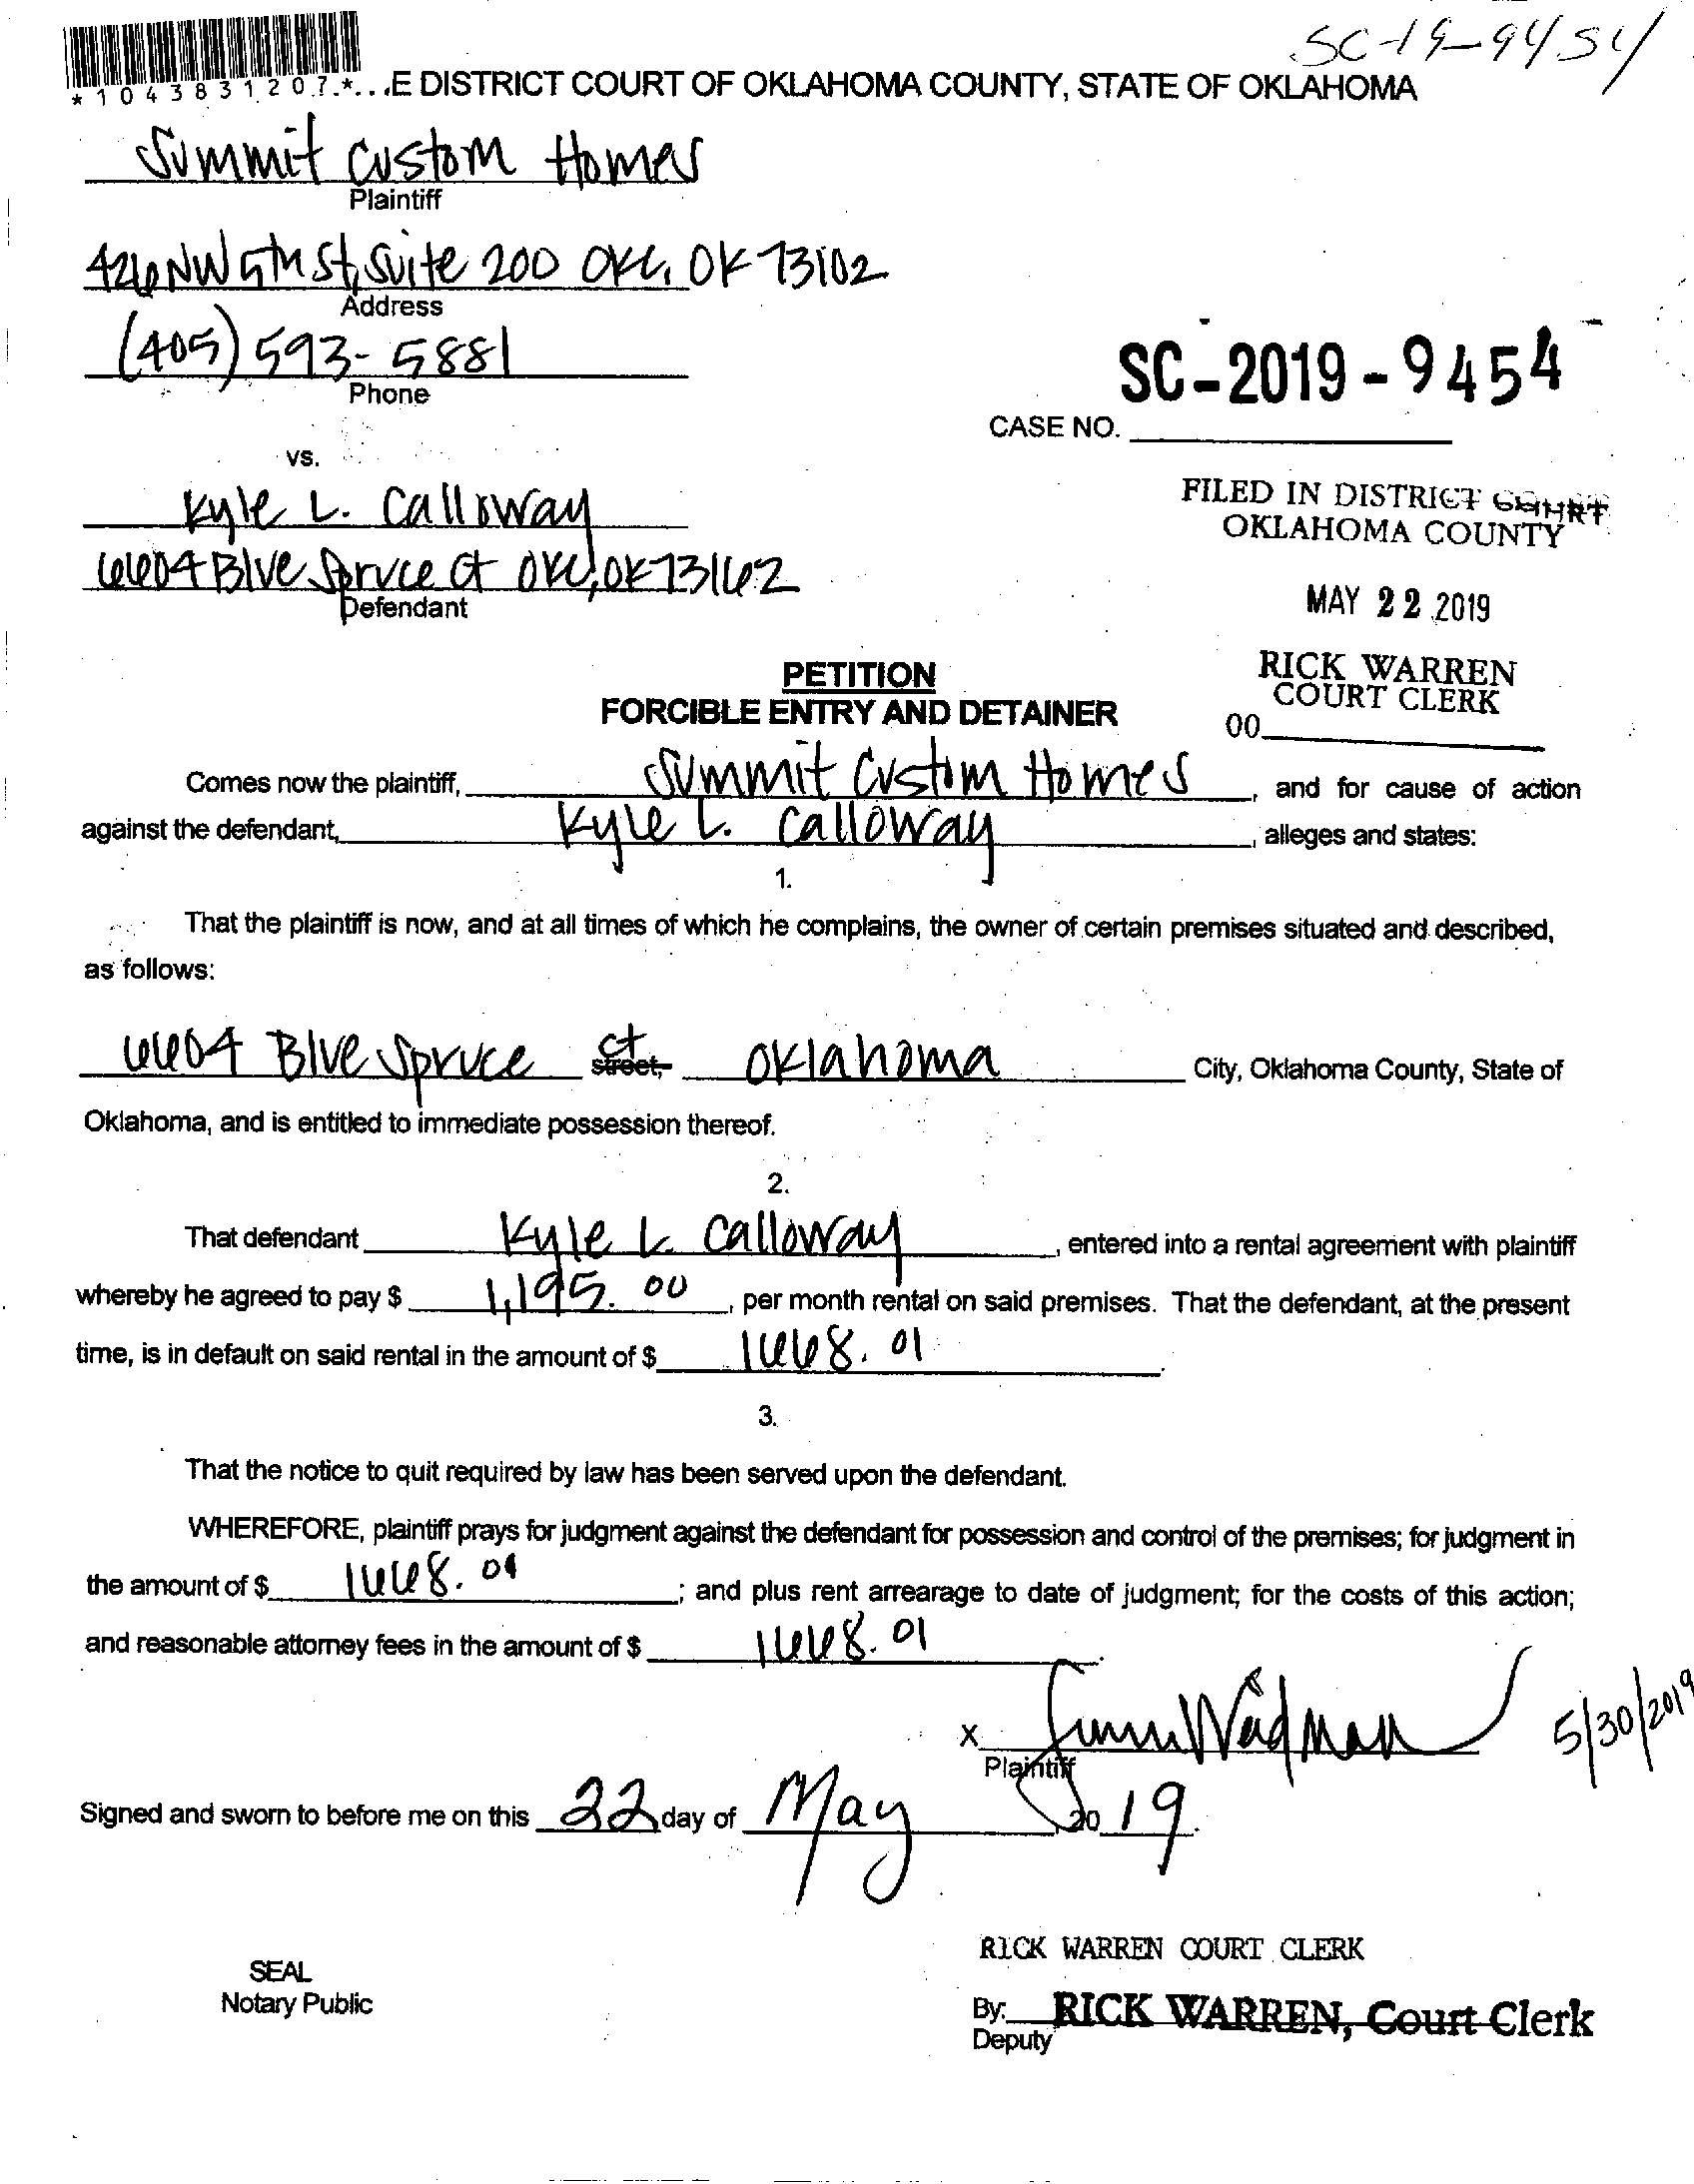 SC-19-9454
*1043831207*
E DISTRICT COURT OF OKLAHOMA COUNTY, STATE OF OKLAHOMA
Summit Custom Homes
Plaintiff
426 NW 5th St, Suite 200 OKC, OK 73102
Address
(405) 593-5881
Phone
SC-2019-9454
CASE NO.
vs.
Kyle L. Calloway
6604 Blue Spruce Ct OKC, OK 73162
Defendant
FILED IN DISTRICT COURT
OKLAHOMA COUNTY
MAY 22 2019
RICK WARREN
COURT CLERK
00
PETITION
FORCIBLE ENTRY AND DETAINER
Comes now the plaintiff, Summit Custom Homes, and for cause of action
against the defendant, Kyle L. Calloway, alleges and states:
1.
That the plaintiff is now, and at all times of which he complains, the owner of certain premises situated and described,
as follows:
6604 Blue Spruce ct street, Oklahoma City, Oklahoma County, State of
Oklahoma, and is entitled to immediate possession thereof.
2.
That defendant Kyle L. Calloway, entered into a rental agreement with plaintiff
whereby he agreed to pay $ 1,195.00, per month rental on said premises. That the defendant, at the present
time, is in default on said rental in the amount of $ 1668.01.
3.
That the notice to quit required by law has been served upon the defendant.
WHEREFORE, plaintiff prays for judgment against the defendant for possession and control of the premises; for judgment in
the amount of $ 1668.01; and plus rent arrearage to date of judgment; for the costs of this action;
and reasonable attorney fees in the amount of $ 1668.01.
X 5/30/2019
Plaintiff
Signed and sworn to before me on this 22 day of May, 2019.
RICK WARREN COURT CLERK
SEAL
Notary Public
By: RICK WARREN, Court Clerk
Deputy